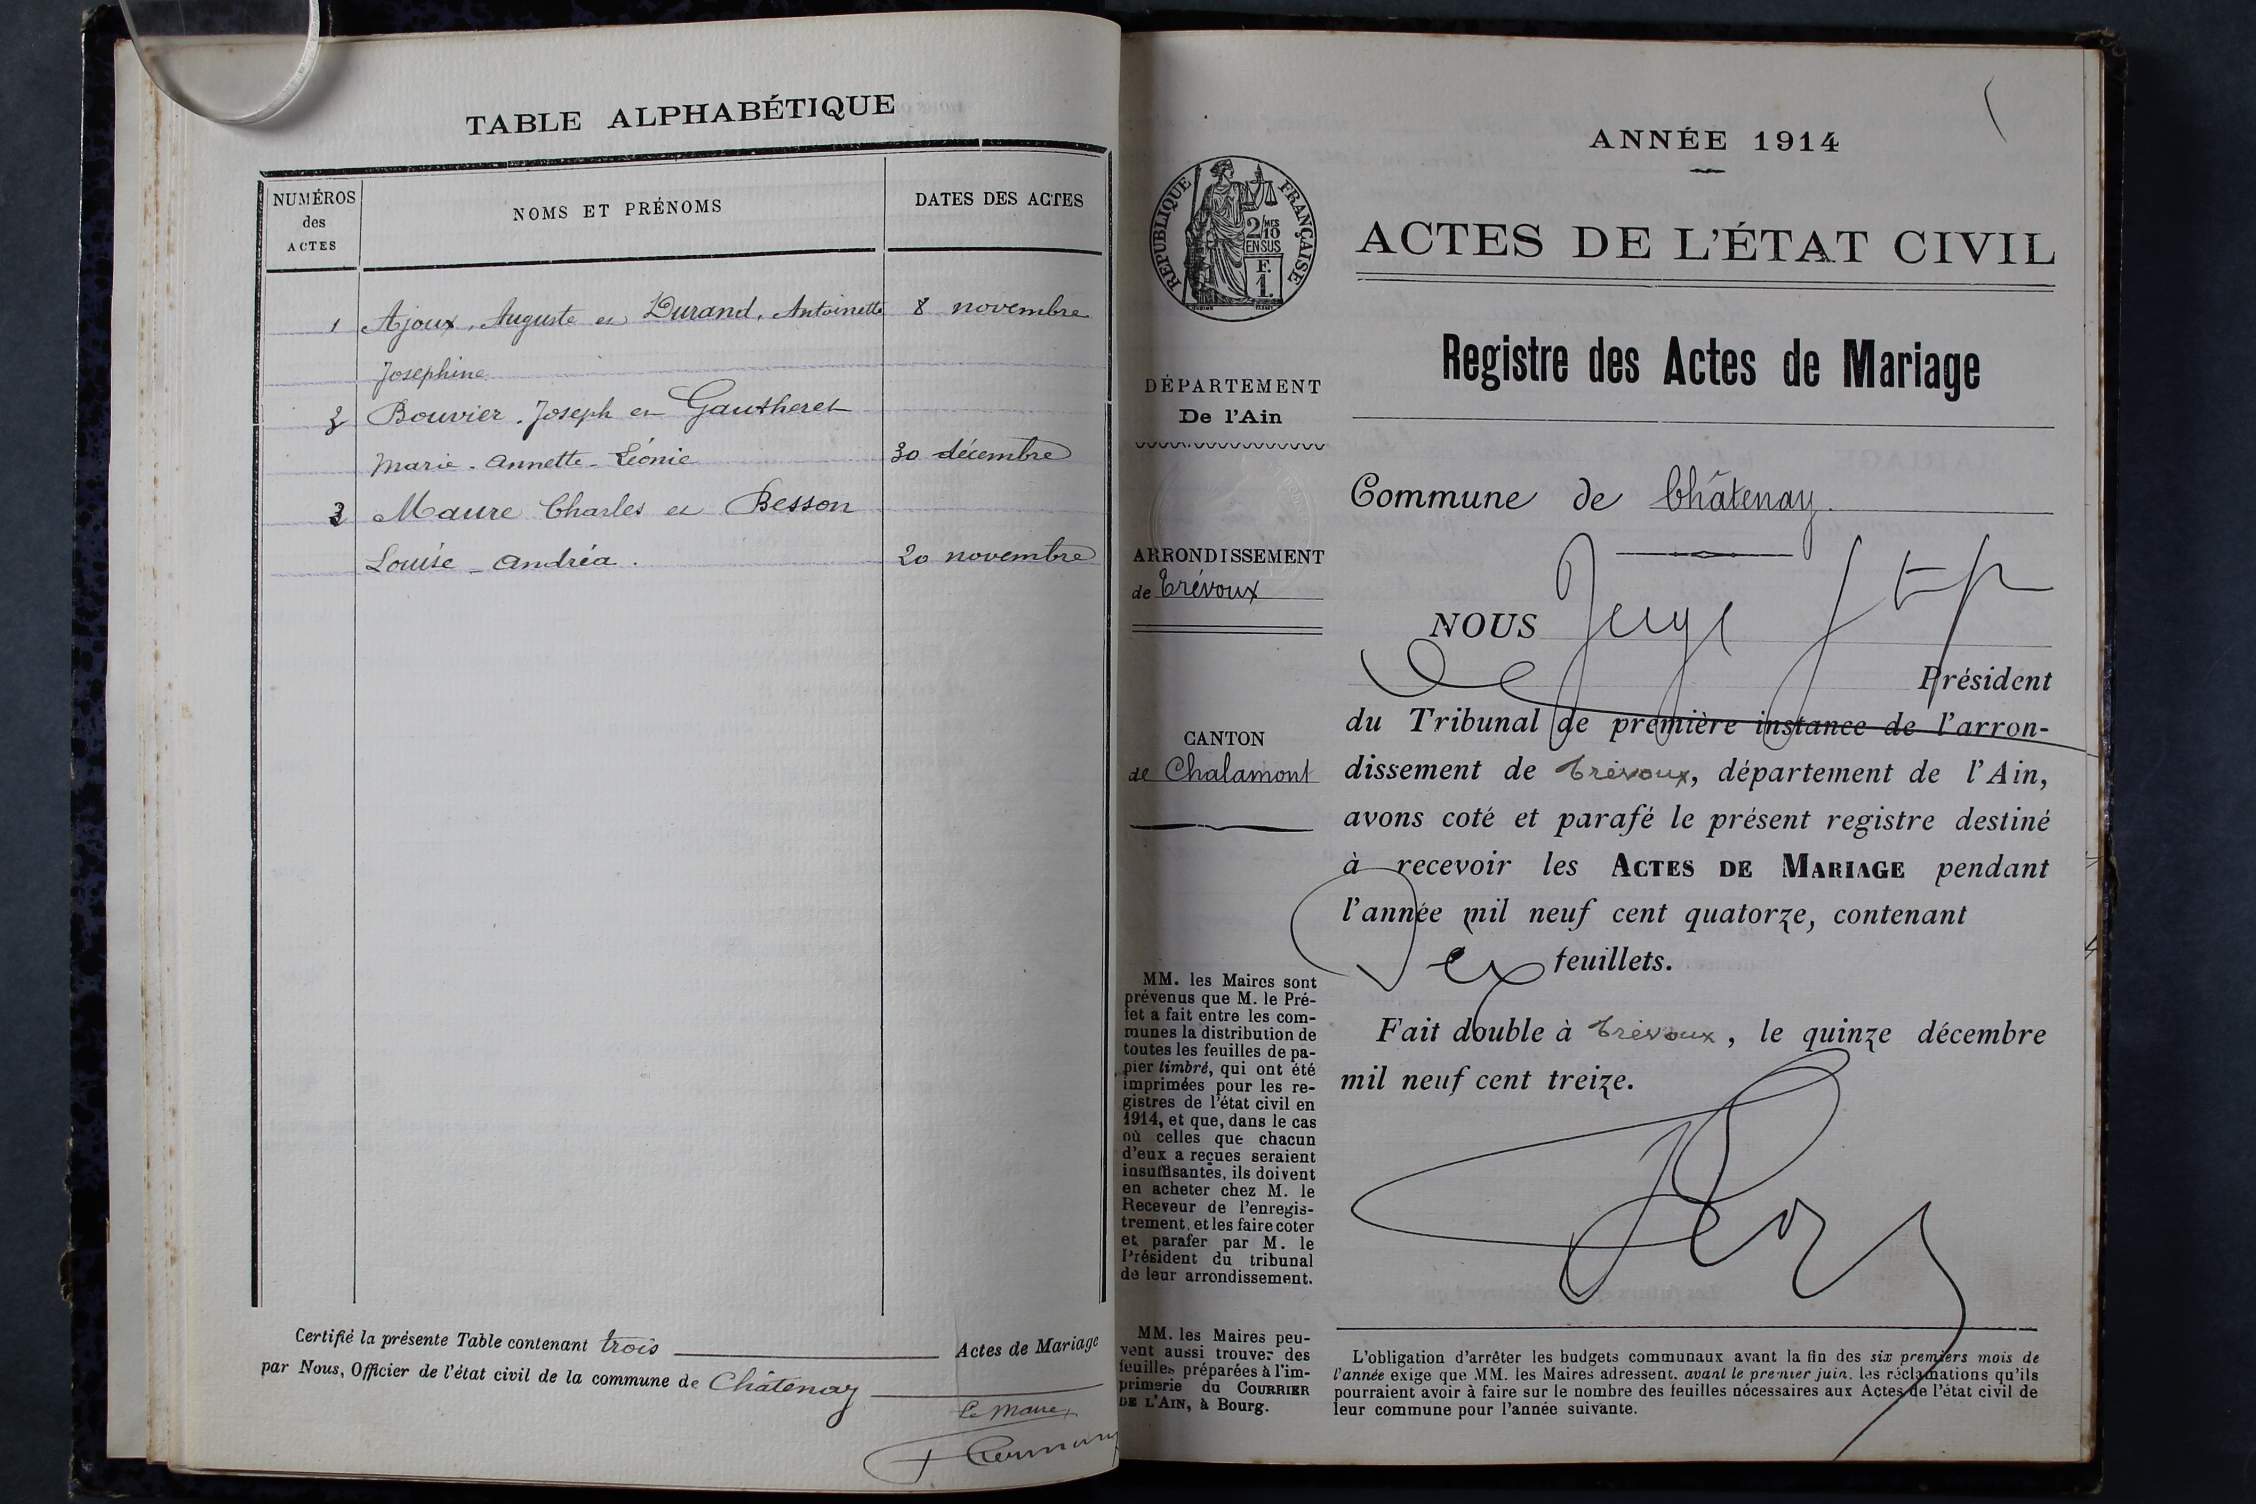 TABLE ALPHABÉTIQUE
NUMÉROS
des
ACTES
NOMS ET PRÉNOMS
DATES DES ACTES
1 Ajoux, Auguste et Durand, Antoinette 8 novembre
Josephine
Bouvier, Joseph et Gautheret
Marie-Annette-Léonie 30 décembre
3 Maure Charles et Besson
Louise-Andréa. 20 novembre
Certifié la présente Table contenant trois Actes de Mariage
par Nous, Officier de l'état civil de la commune de Châtenay
Le Maire
ANNÉE 1914
RÉPUBLIQUE FRANÇAISE
2/10 MES
EN SUS
F.
1.
ACTES DE L'ÉTAT CIVIL
Registre des Actes de Mariage
DÉPARTEMENT
De l'Ain
ARRONDISSEMENT
de Trévoux
CANTON
de Chalamont
MM. les Maires sont
prévenus que M. le Pré-
fet a fait entre les com-
munes la distribution de
toutes les feuilles de pa-
pier timbré, qui ont été
imprimées pour les re-
gistres de l'état civil en
1914, et que, dans le cas
où celles que chacun
d'eux a reçues seraient
insuffisantes, ils doivent
en acheter chez M. le
Receveur de l'enregis-
trement, et les faire coter
et parafer par M. le
Président du tribunal
de leur arrondissement.
MM. les Maires peu-
vent aussi trouver des
feuilles préparées à l'im-
primerie du COURRIER
DE L'AIN, à Bourg.
Commune de Châtenay.
NOUS Juge
Président
du Tribunal de première instance de l'arron-
dissement de Trévoux, département de l'Ain,
avons coté et parafé le présent registre destiné
à recevoir les ACTES DE MARIAGE pendant
l'année mil neuf cent quatorze, contenant
feuillets.
Fait double à Trévoux, le quinze décembre
mil neuf cent treize.
L'obligation d'arrêter les budgets communaux avant la fin des six premiers mois de
l'année exige que MM. les Maires adressent, avant le premier juin, les réclamations qu'ils
pourraient avoir à faire sur le nombre des feuilles nécessaires aux Actes de l'état civil de
leur commune pour l'année suivante.